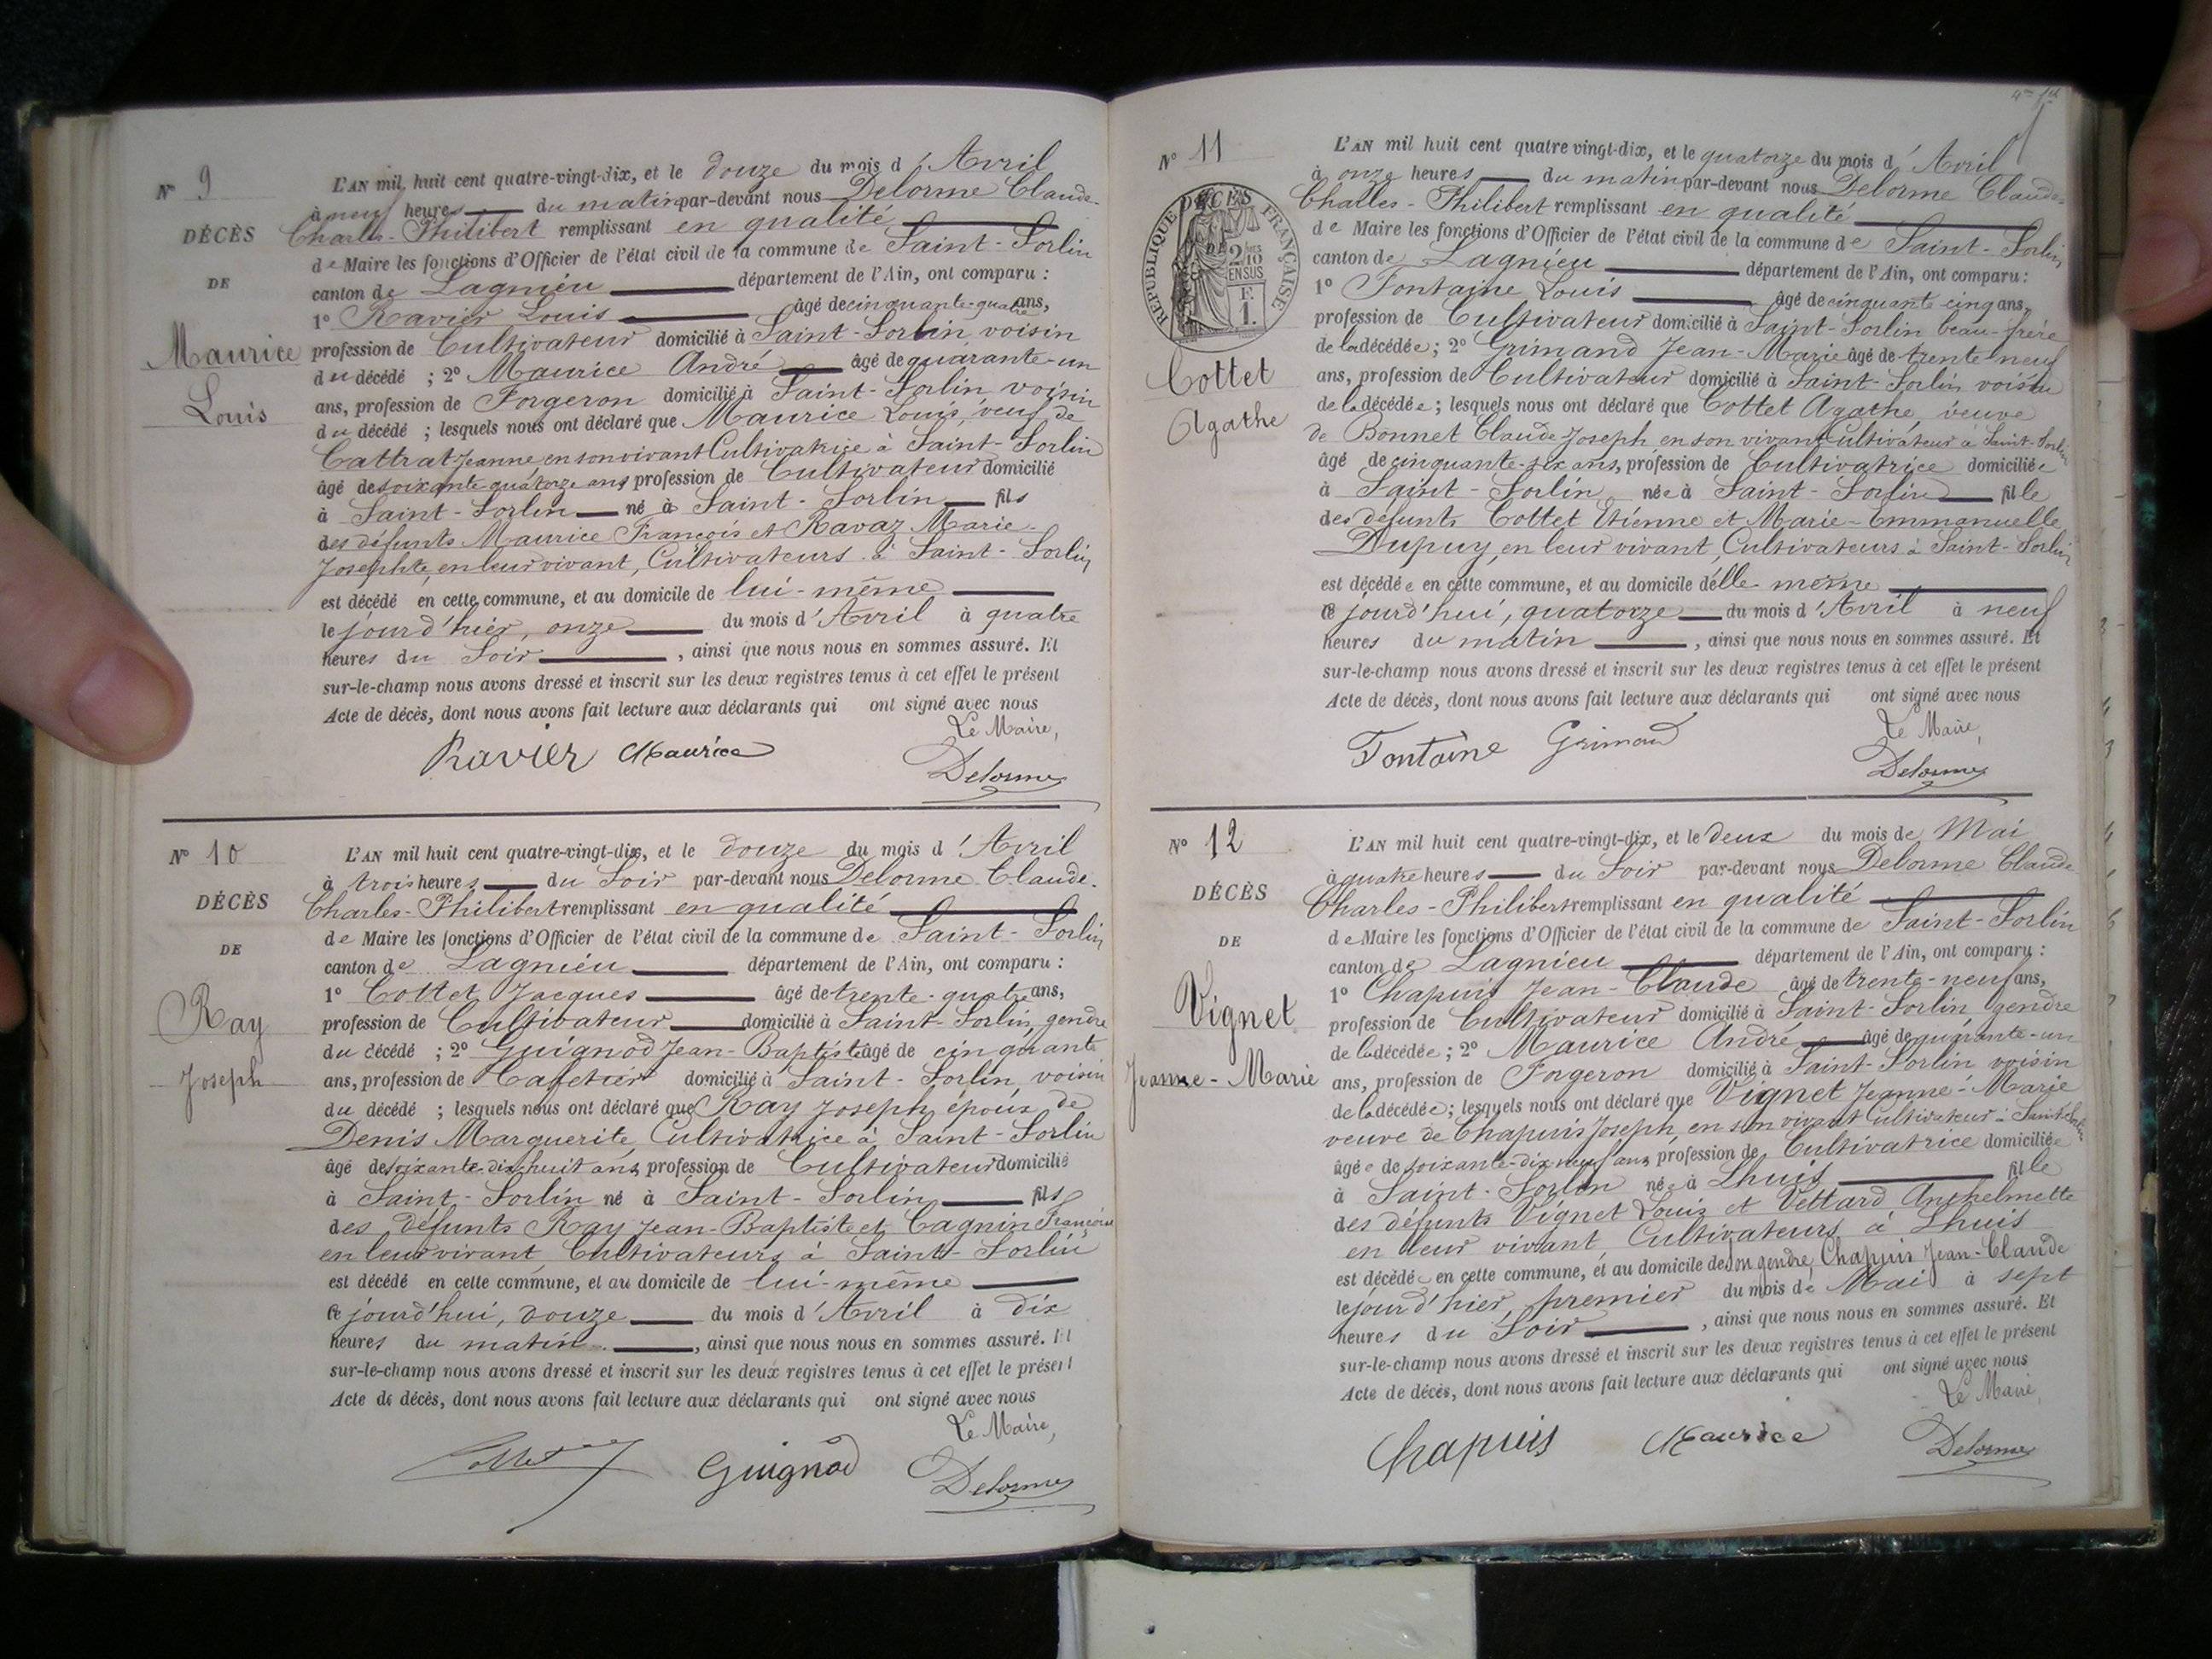 Nº 9
DÉCÈS
DE
Maurice
Louis
L'AN mil huit cent quatre-vingt-dix, et le douze du mois d'Avril
à neuf heures du matin par-devant nous Delorme Claude-
Charles-Philibert remplissant en qualité
de Maire les fonctions d'Officier de l'état civil de la commune de Saint-Sorlin
canton de Lagnieu département de l'Ain, ont comparu :
1º Ravier Louis âgé de cinquante-quatre ans,
profession de Cultivateur domicilié à Saint-Sorlin voisin
du décédé ; 2º Maurice André âgé de quarante-un
ans, profession de Forgeron domicilié à Saint-Sorlin voisin
du décédé ; lesquels nous ont déclaré que Maurice Louis, veuf de
Cattrat Jeanne en son vivant Cultivatrice à Saint-Sorlin
âgé de soixante quatorze ans profession de Cultivateur domicilié
à Saint-Sorlin né à Saint-Sorlin fils
des défunts Maurice François et Ravaz Marie-
Josephte, en leur vivant, Cultivateurs à Saint-Sorlin
est décédé en cette commune, et au domicile de lui-même
le jour d'hier, onze du mois d'Avril à quatre
heures du Soir , ainsi que nous nous en sommes assuré. Et
sur-le-champ nous avons dressé et inscrit sur les deux registres tenus à cet effet le présent
Acte de décès, dont nous avons fait lecture aux déclarants qui ont signé avec nous
Le Maire,
Ravier Maurice
Delorme
Nº 10
DÉCÈS
DE
Ray
Joseph
L'AN mil huit cent quatre-vingt-dix, et le douze du mois d'Avril
à trois heures du Soir par-devant nous Delorme Claude-
Charles-Philibert remplissant en qualité
de Maire les fonctions d'Officier de l'état civil de la commune de Saint-Sorlin
canton de Lagnieu département de l'Ain, ont comparu :
1º Cottet Jacques âgé de trente-quatre ans,
profession de Cultivateur domicilié à Saint-Sorlin, gendre
du décédé ; 2º Guignod Jean-Baptiste âgé de cinquante
ans, profession de Cafetier domicilié à Saint-Sorlin, voisin
du décédé ; lesquels nous ont déclaré que Ray Joseph, époux de
Denis Marguerite, Cultivatrice à Saint-Sorlin
âgé de soixante-dix-huit ans, profession de Cultivateur domicilié
à Saint-Sorlin né à Saint-Sorlin fils
des défunts Ray Jean-Baptiste et Cagnin Françoise
en leur vivant Cultivateurs à Saint-Sorlin
est décédé en cette commune, et au domicile de lui-même
ce jourd'hui, douze du mois d'Avril à dix
heures du matin , ainsi que nous nous en sommes assuré. Et
sur-le-champ nous avons dressé et inscrit sur les deux registres tenus à cet effet le présent
Acte de décès, dont nous avons fait lecture aux déclarants qui ont signé avec nous
Le Maire,
Cottet Guignod
Delorme
Nº 11
DÉCÈS
DE
RÉPUBLIQUE FRANÇAISE
2/10 EN SUS
F. 1.
Cottet
Agathe
L'AN mil huit cent quatre vingt-dix, et le quatorze du mois d'Avril
à onze heures du matin par-devant nous Delorme Claude-
Challes-Philibert remplissant en qualité
de Maire les fonctions d'Officier de l'état civil de la commune de Saint-Sorlin
canton de Lagnieu département de l'Ain, ont comparu :
1º Fontaine Louis âgé de cinquante cinq ans,
profession de Cultivateur domicilié à Saint-Sorlin beau-frère
de la décédée ; 2º Grimand Jean-Marie âgé de trente-neuf
ans, profession de Cultivateur domicilié à Saint-Sorlin voisin
de la décédée ; lesquels nous ont déclaré que Cottet Agathe, veuve
de Bonnet Claude Joseph en son vivant Cultivateur à Saint-Sorlin
âgé de cinquante-six ans, profession de Cultivatrice domiciliée
à Saint-Sorlin, née à Saint-Sorlin fille
des défunts Cottet Etienne et Marie-Emmanuelle
Dupuy, en leur vivant, Cultivateurs à Saint-Sorlin
est décédée en cette commune, et au domicile d'elle-même
ce jourd'hui, quatorze du mois d'Avril à neuf
heures du matin , ainsi que nous nous en sommes assuré. Et
sur-le-champ nous avons dressé et inscrit sur les deux registres tenus à cet effet le présent
Acte de décès, dont nous avons fait lecture aux déclarants qui ont signé avec nous
Le Maire,
Fontaine Grimand
Delorme
Nº 12
DÉCÈS
DE
Vignet
Jeanne-Marie
L'AN mil huit cent quatre-vingt-dix, et le deux du mois de Mai
à quatre heures du Soir par-devant nous Delorme Claude
Charles-Philibert remplissant en qualité
de Maire les fonctions d'Officier de l'état civil de la commune de Saint-Sorlin
canton de Lagnieu département de l'Ain, ont comparu :
1º Chapuis Jean-Claude âgé de trente-neuf ans,
profession de Cultivateur domicilié à Saint-Sorlin, gendre
de la décédée ; 2º Maurice André âgé de quarante-un
ans, profession de Forgeron domicilié à Saint-Sorlin voisin
de la décédée ; lesquels nous ont déclaré que Vignet Jeanne-Marie
veuve de Chapuis Joseph, en son vivant Cultivateur à Saint-Sorlin
âgée de soixante-dix-neuf ans profession de Cultivatrice domiciliée
à Saint-Sorlin née à Lhuis fille
des défunts Vignet Louis et Vettard Anthelmette
en leur vivant Cultivateurs à Lhuis
est décédée en cette commune, et au domicile de son gendre, Chapuis Jean-Claude
le jour d'hier, premier du mois de Mai à sept
heures du Soir , ainsi que nous nous en sommes assuré. Et
sur-le-champ nous avons dressé et inscrit sur les deux registres tenus à cet effet le présent
Acte de décès, dont nous avons fait lecture aux déclarants qui ont signé avec nous
Le Maire,
Chapuis Maurice
Delorme